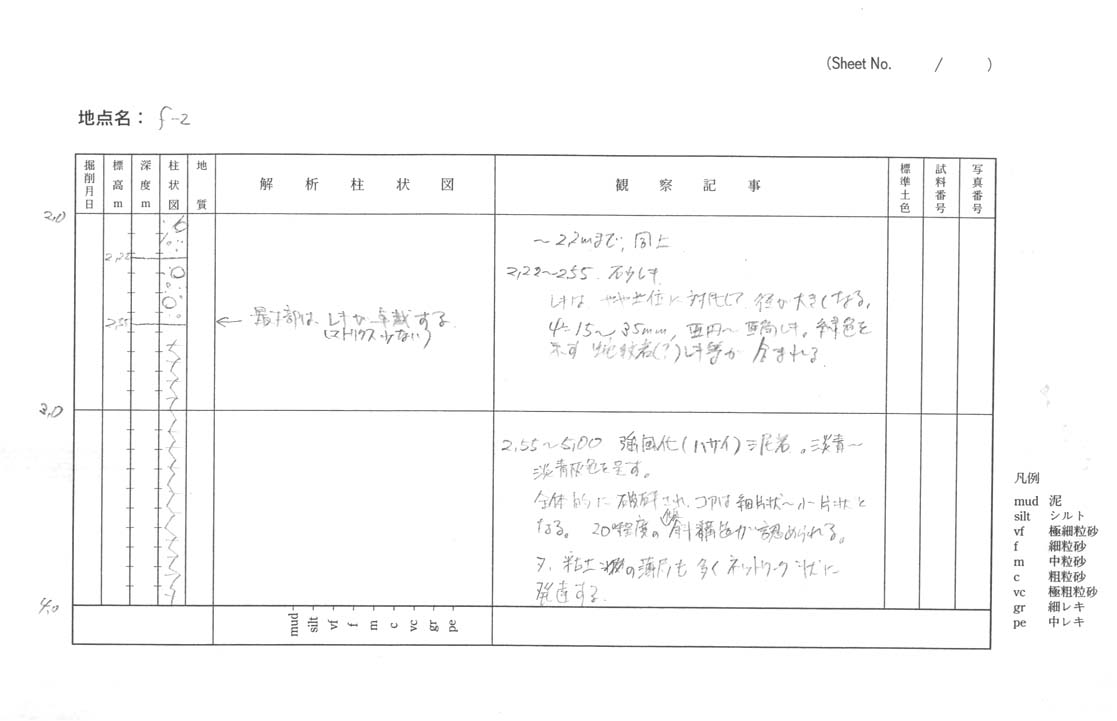 (Sheet No. / )
地点名： f-2
掘削月日 標高m 深度m 柱状図 地質 解析柱状図 観察記事 標準土色 試料番号 写真番号
2,0
～2,2mまで, 同上
2,22
2,22～2.55. 砂レキ
レキは やや上位に対比して 径が大きくなる,
最下部は、レキが卓越する
(マトリクス少ない)
2,55
φ=15～35mm, 亜円～亜角レキ。緑色を
示す (?)レキ等が 含まれる
3,0
2,55～5,00 強風化(ハサイ)泥岩。淡青～
淡青灰色を呈す。
全体的に 破砕され, コアは細片状～小片状と
なる。 20°程度の 傾斜構造が認められる。
又、粘土状の薄層も 多く ネットワーク状に
発達する.
4,0
mud silt vf f m c vc gr pe
凡例
mud 泥
silt シルト
vf 極細粒砂
f 細粒砂
m 中粒砂
c 粗粒砂
vc 極粗粒砂
gr 細レキ
pe 中レキ